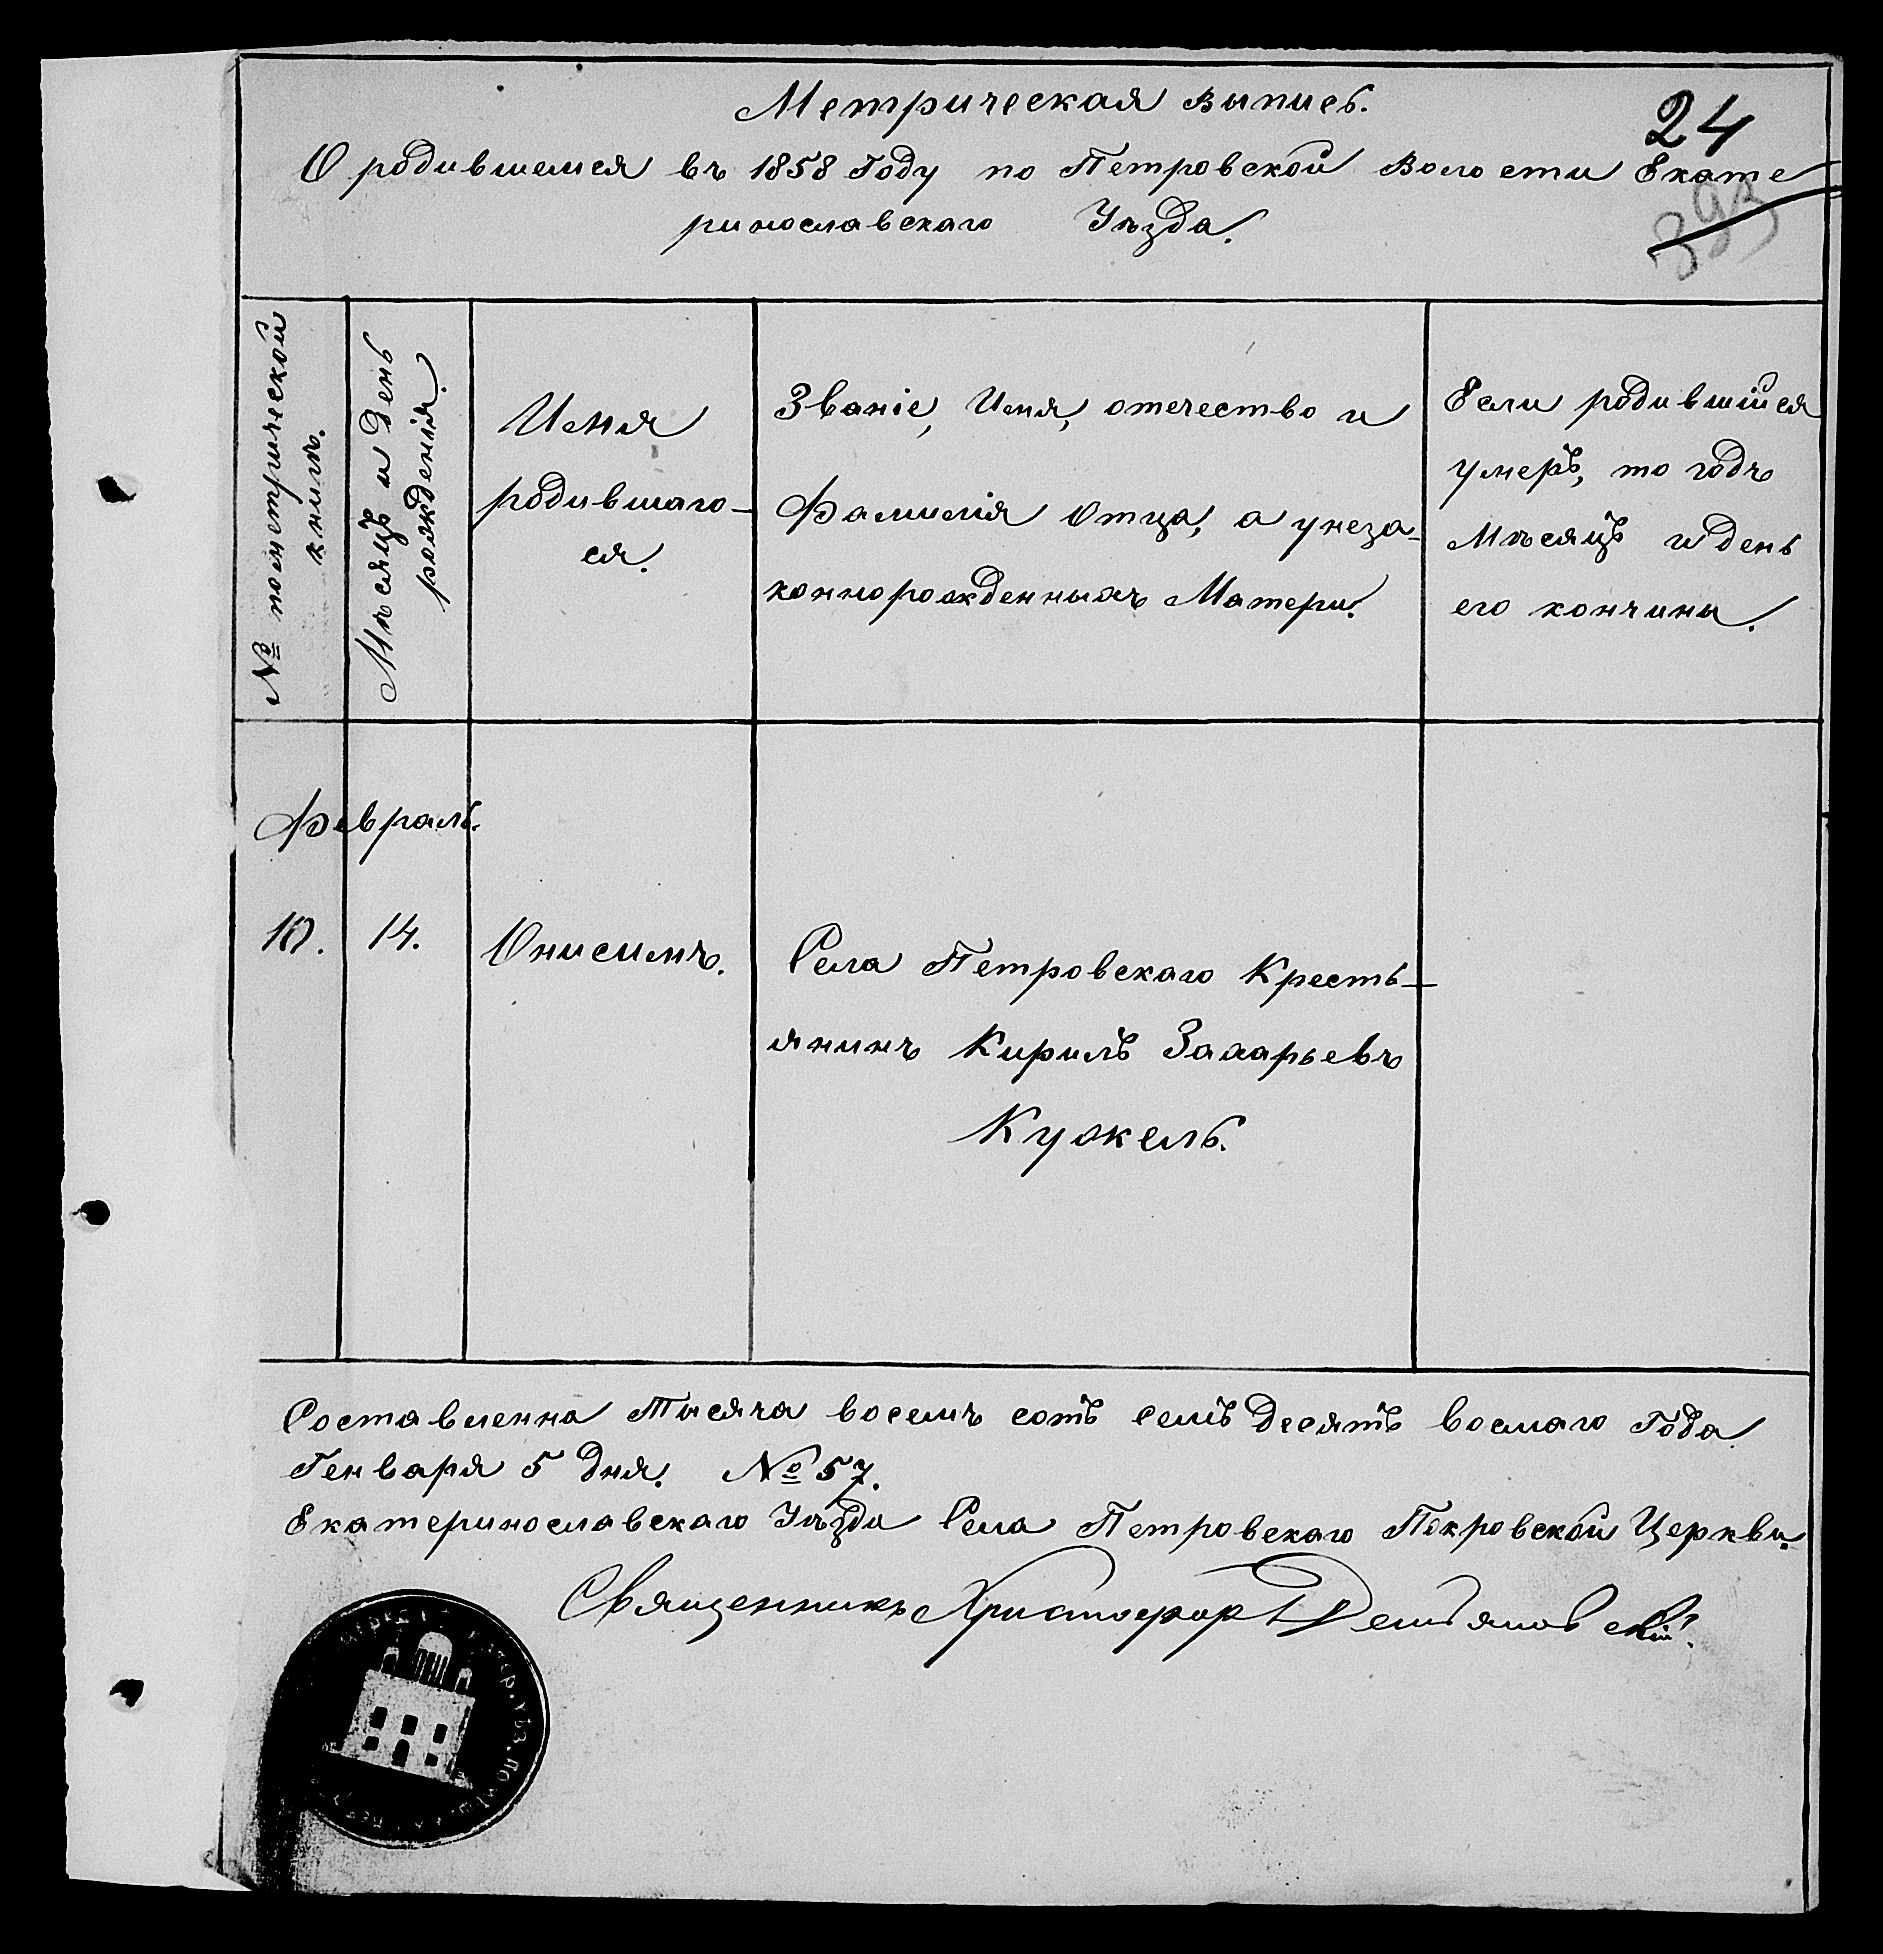 Метрическая выпись.
24
О родившемся въ 1858 Году по Петровской Волости Екате
393
ринославскаго Уѣзда.
№ по метрической
книгѣ.
Мѣсяцъ и День
рожденія.
Имя
родившаго-
ся.
Званіе, Имя, отечество и
Фамилія Отца, а у неза-
коннорожденныхъ Матери.
Если родившійся
умеръ, то годъ
Мѣсяцъ и день
его кончины.
Февраль.
10. 14. Онисимъ.
Села Петровскаго Кресть-
янинъ Кирилъ Захарьевъ
Кужель.
Составленна Тысяча восемъ сотъ семъ десятъ восмаго Года
Генваря 5 Дня. № 57.
Екатеринославскаго Уѣзда Села Петровскаго Покровской Церкви.
Священникъ Христофор